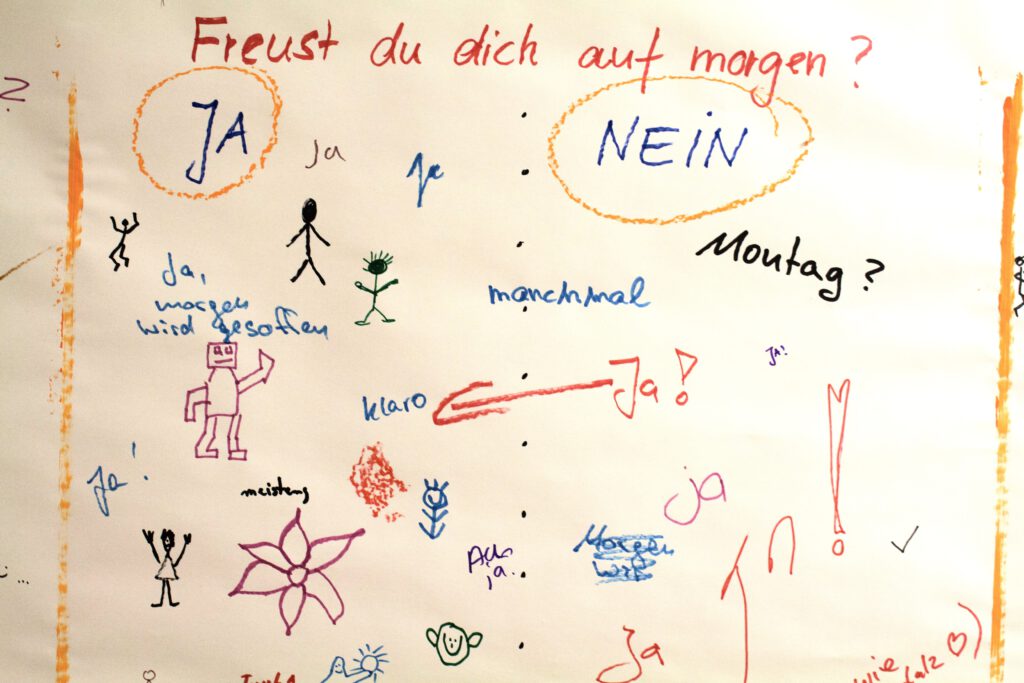 Freust du dich auf morgen?
JA
NEIN
Ja
Ja
Montag?
Ja,
morgen
wird gesoffen
manchmal
JA!
klaro
Ja!
Ja!
meistens
ja
Ach
ja.
Morgen
Ja
wie